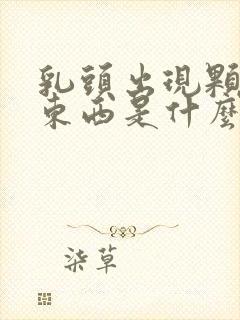 乳頭出現顆
東西是什麼
柒草